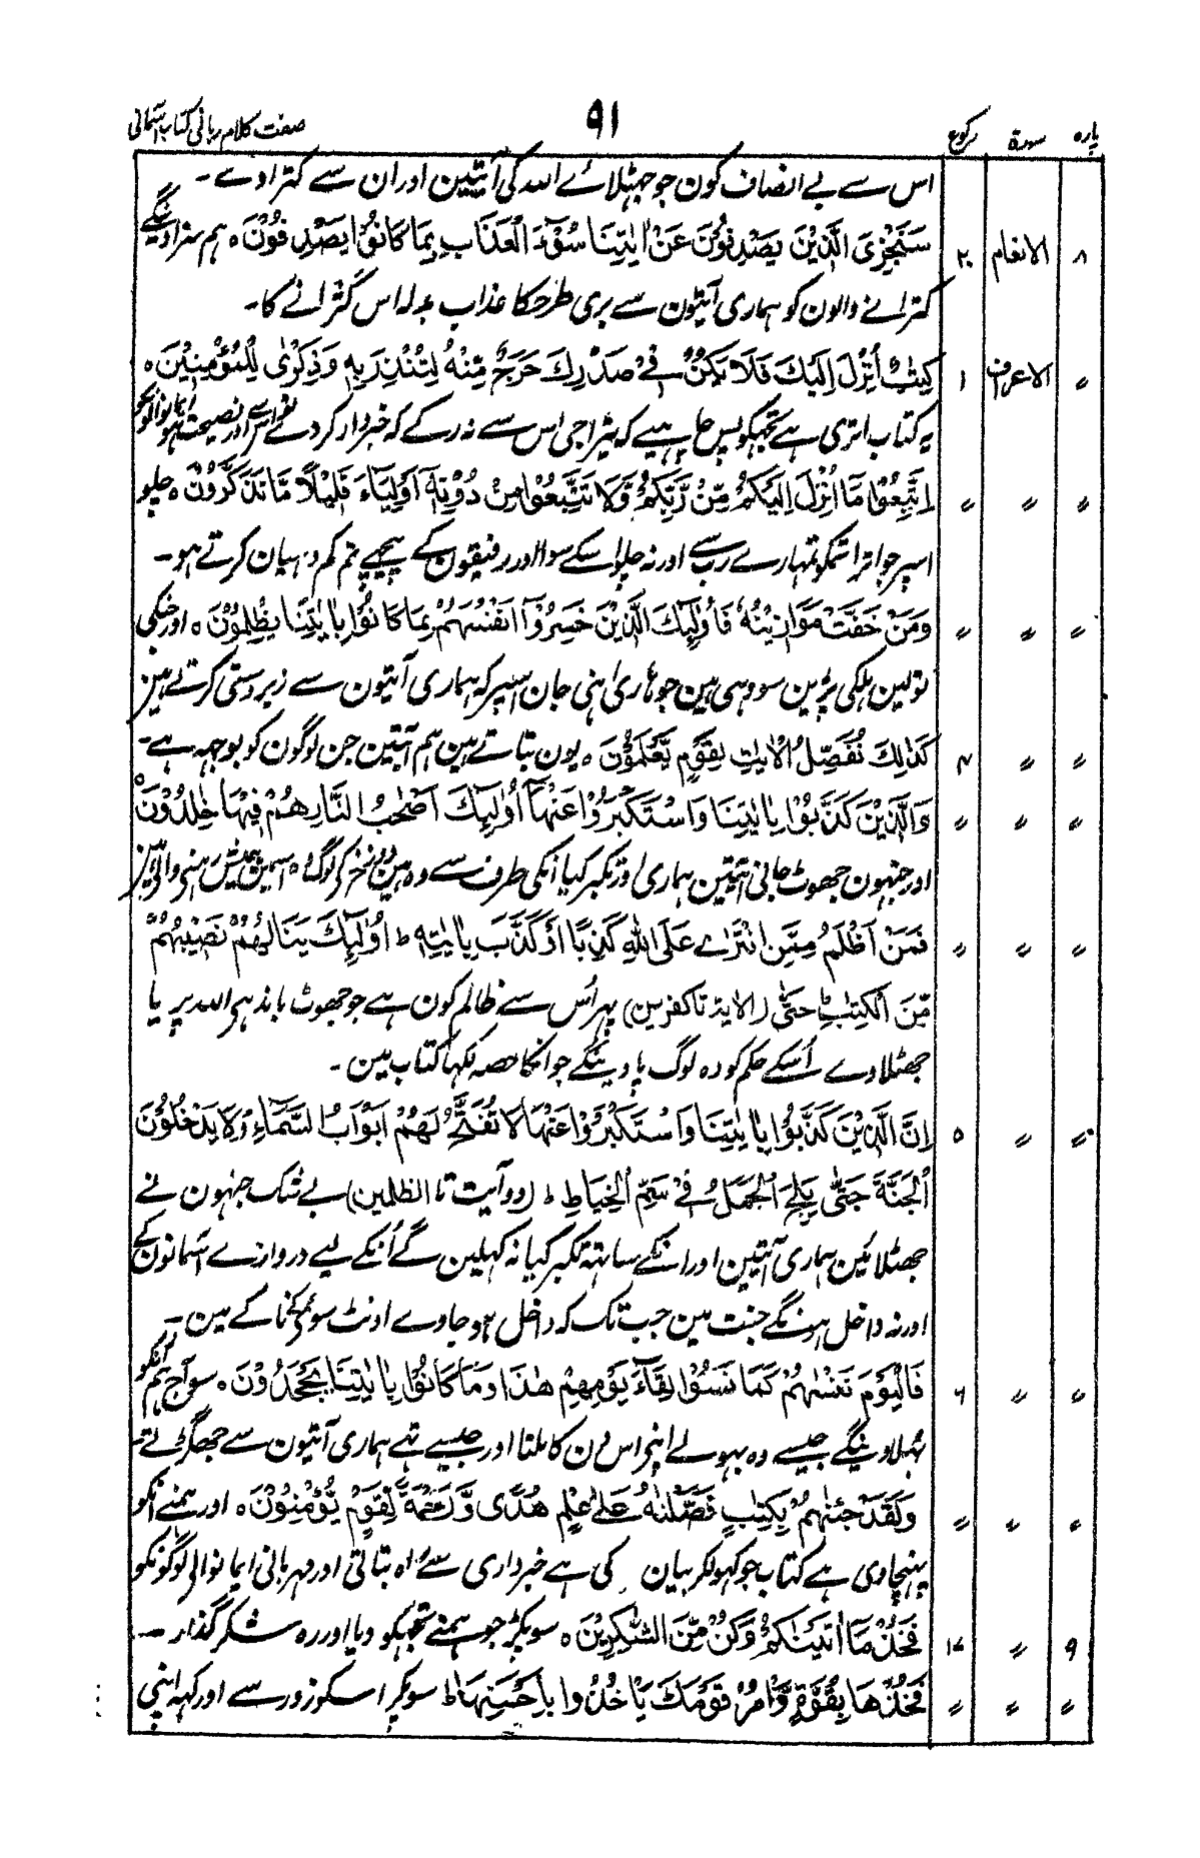 پارہ سورۃ رکوع ۹۱ صفت کلام ربانی کتاب آسمانی
اس سے بے انصاف کون جو جہٹلائے اللہ کی آیتین اور ان سے کتراوے۔
۸ الانعام ۲۰ سَنَجْزِی الَّذِیْنَ یَصْدِفُوْنَ عَنْ اٰیٰتِنَا سُوْٓءَ الْعَذَابِ بِمَا کَانُوْا یَصْدِفُوْنَ ٥ ہم سزا دینگے
کترانے والون کو ہماری آیتون سے بری طرحکا عذاب بدلہ اس کترانے کا۔
〃 الاعراف ۱ کِتٰبٌ اُنْزِلَ اِلَیْکَ فَلَا یَکُنْ فِیْ صَدْرِکَ حَرَجٌ مِّنْهُ لِتُنْذِرَ بِهٖ وَذِکْرٰی لِلْمُؤْمِنِیْنَ ٥
یہ کتاب اتری ہے تجہکو پس چاہیے کہ تیرا جی اس سے نہ رکے کہ خبردار کردے تو اس سے اور نصیحت ہو ایمانوالونکو
〃 〃 〃 اِتَّبِعُوْا مَا اُنْزِلَ اِلَیْکُمْ مِّنْ رَّبِّکُمْ وَلَا تَتَّبِعُوْا مِنْ دُوْنِهٖٓ اَوْلِیَآءَ قَلِیْلًا مَّا تَذَکَّرُوْنَ ٥ چلو
اسپر جو اترا تمکو تمہارے رب سے اور نہ چلو اسکے سوا اور رفیقون کے پیچھے تم کم دہیان کرتے ہو۔
〃 〃 〃 وَمَنْ خَفَّتْ مَوَازِیْنُهٗ فَاُولٰٓئِکَ الَّذِیْنَ خَسِرُوْٓا اَنْفُسَهُمْ بِمَا کَانُوْا بِاٰیٰتِنَا یَظْلِمُوْنَ ٥ اور جنکی
تولین ہلکی پڑین سو وہی ہین جو ہاری اپنی جان اسپر کہ ہماری آیتون سے زبردستی کرتے ہین
〃 〃 ۴ کَذٰلِکَ نُفَصِّلُ الْاٰیٰتِ لِقَوْمٍ یَّعْلَمُوْنَ ٥ یون بتاتے ہین ہم آیتین جن لوگون کو بوجہ ہے۔
〃 〃 〃 وَالَّذِیْنَ کَذَّبُوْا بِاٰیٰتِنَا وَاسْتَکْبَرُوْا عَنْهَآ اُولٰٓئِکَ اَصْحٰبُ النَّارِ هُمْ فِیْهَا خٰلِدُوْنَ ٥
اور جنہون جھوٹ جانی آیتین ہماری اور تکبر کیا انکی طرف سے وہ ہین دوزخ کے لوگ وہ اسمین ہمیشہ رہنے والے ہین
〃 〃 〃 فَمَنْ اَظْلَمُ مِمَّنِ افْتَرٰے عَلَی اللّٰهِ کَذِبًا اَوْ کَذَّبَ بِاٰیٰتِهٖ ط اُولٰٓئِکَ یَنَالُهُمْ نَصِیْبُهُمْ
مِّنَ الْکِتٰبِ حَتّٰی (الایة تا کفرین) پہر اُس سے ظالم کون ہے جو جھوٹ باندہے اللہ پر یا
جھٹلاوے اُسکے حکم کو وہ لوگ پاوینگے جو انکا حصہ لکہا کتاب مین۔
〃 〃 ۵ اِنَّ الَّذِیْنَ کَذَّبُوْا بِاٰیٰتِنَا وَاسْتَکْبَرُوْا عَنْهَا لَا تُفَتَّحُ لَهُمْ اَبْوَابُ السَّمَآءِ وَلَا یَدْخُلُوْنَ
الْجَنَّةَ حَتّٰی یَلِجَ الْجَمَلُ فِیْ سَمِّ الْخِیَاطِ ط (دو آیت تا الظلمین) بے شک جنہون نے
جھٹلائین ہماری آیتین اور انکے ساتہہ تکبر کیا نہ کہلین گے اُنکے لیے دروازے آسمانون کے
اور نہ داخل ہونگے جنت مین جب تک کہ داخل ہو جاوے اونٹ سوئی کے ناکے مین۔
〃 〃 ۶ فَالْیَوْمَ نَنْسٰهُمْ کَمَا نَسُوْا لِقَآءَ یَوْمِهِمْ هٰذَا وَمَا کَانُوْا بِاٰیٰتِنَا یَجْحَدُوْنَ ٥ سو آج ہم انکو
بہلاوینگے جیسے وہ بہولے اپنے اس دن کا ملنا اور جیسے تہے ہماری آیتون سے جھگڑتے
〃 〃 〃 وَلَقَدْ جِئْنٰهُمْ بِکِتٰبٍ فَصَّلْنٰهُ عَلٰی عِلْمٍ هُدًی وَّرَحْمَةً لِّقَوْمٍ یُّؤْمِنُوْنَ ٥ اور ہمنے انکو
پہنچا دی ہے کتاب جو کہولکر بیان کی ہے خبرداری سے راہ بتاتی اور مہربانی ایمانوالے لوگونکو
۹ 〃 ۱۷ فَخُذْ مَآ اٰتَیْتُکَ وَکُنْ مِّنَ الشّٰکِرِیْنَ ٥ سو پکڑ جو ہمنے تجہکو دیا اور رہ شکر گذار۔
〃 〃 〃 فَخُذْهَا بِقُوَّةٍ وَّاْمُرْ قَوْمَکَ یَاْخُذُوا بِاَحْسَنِهَا ط سو پکڑ اسکو زور سے اور کہہ اپنی